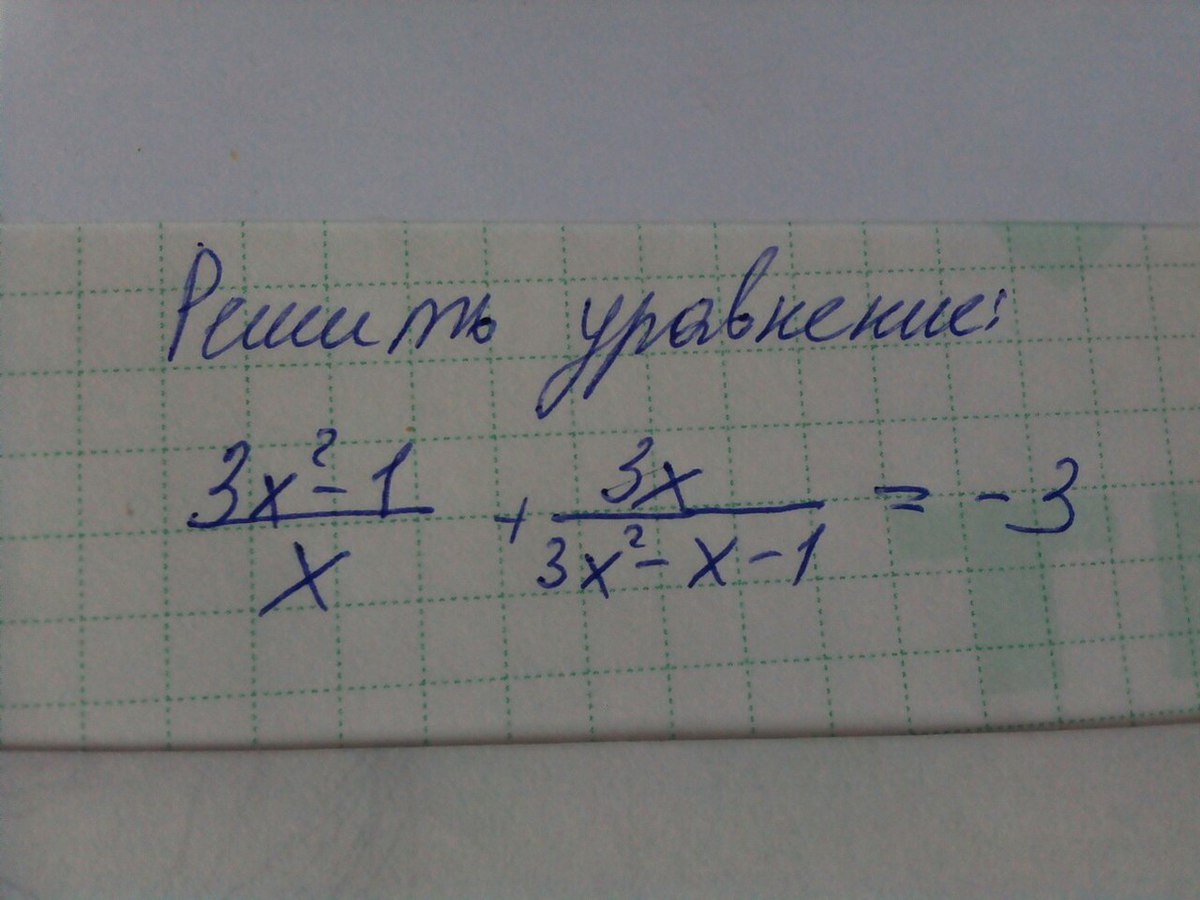 Решить уравнение:
(3x² - 1)/x + 3x/(3x² - x - 1) = -3